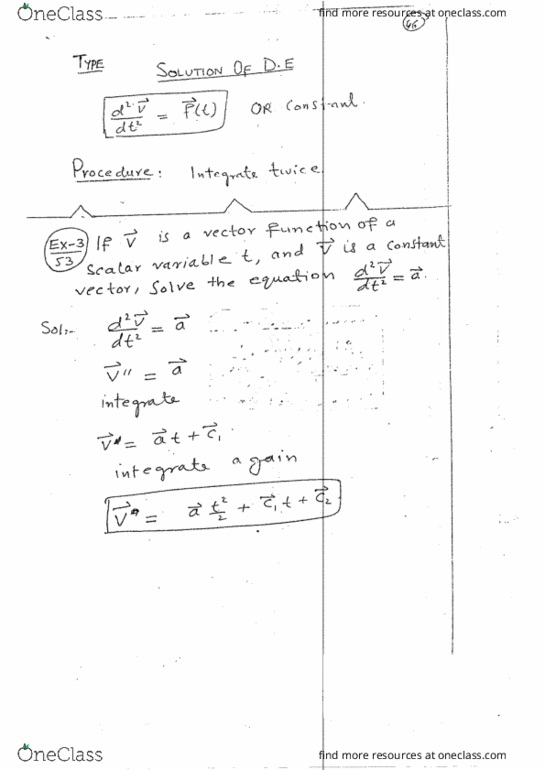 OneClass
find more resources at oneclass.com
TYPE
SOLUTION OF D.E
d²V⃗/dt² = F⃗(t) OR Constant.
Procedure: Integrate twice
Ex-3/53 If V⃗ is a vector function of a
scalar variable t, and V⃗ is a constant
vector, Solve the equation d²V⃗/dt² = a⃗.
Sol:- d²V⃗/dt² = a⃗
V⃗'' = a⃗
integrate
V⃗' = a⃗t + c⃗₁
integrate again
V⃗ = a⃗ t²/2 + c⃗₁t + c⃗₂
OneClass
find more resources at oneclass.com